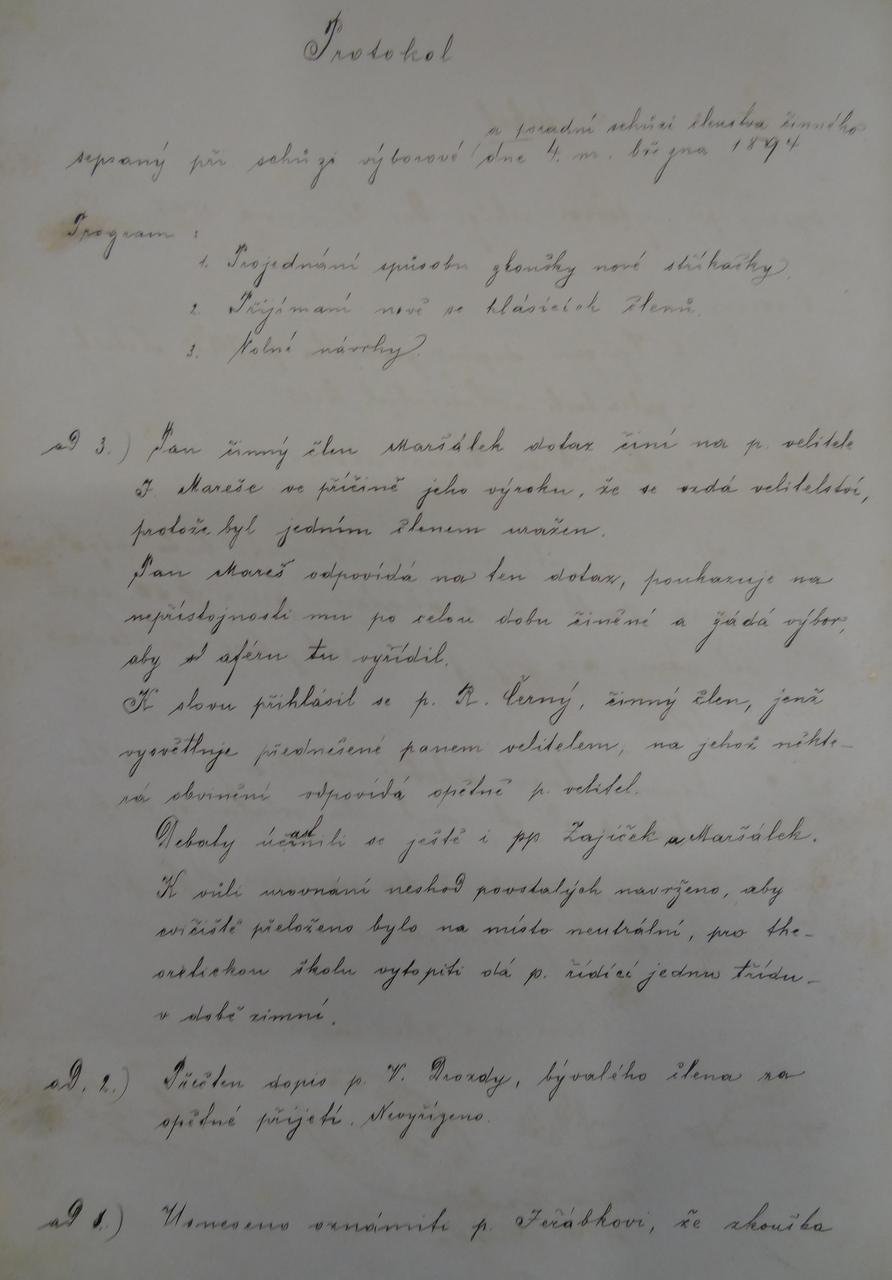 Protokol
a poradní schůzi členstva činného
sepsaný při schůzi výborové dne 4. m. března 1894
Program :
1. Projednání spůsobu zkoušky nové stříkačky.
2. Přijímaní nově se hlásících členů.
3. Volné návrhy.
ad 3.) Pan činný člen Maršálek dotaz činí na p. velitele
J. Mareše ve příčině jeho výroku, že se vzdá velitelství,
protože byl jedním členem uražen.
Pan Mareš odpovídá na ten dotaz, poukazuje na
nepřístojnosti mu po celou dobu činěné a žádá výbor,
aby aféru tu vyřídil.
K slovu přihlásil se p. R. Černý, činný člen, jenž
vysvětluje přednešené panem velitelem, na jehož někte-
rá obvinění odpovídá opětně p. velitel.
Debaty účastnili se ještě i pp Zajíček a Maršálek.
K vůli urovnání neshod povstalých navrženo, aby
cvičiště přeloženo bylo na místo neutrální, pro the-
oretickou školu vytopiti dá p. řídící jednu třídu
v době zimní.
ad. 2.) Přečten dopis p. V. Drozdy, bývalého člena za
opětné přijetí. Nevyřízeno.
ad 1.) Usneseno oznámiti p. Jeřábkovi, že zkouška